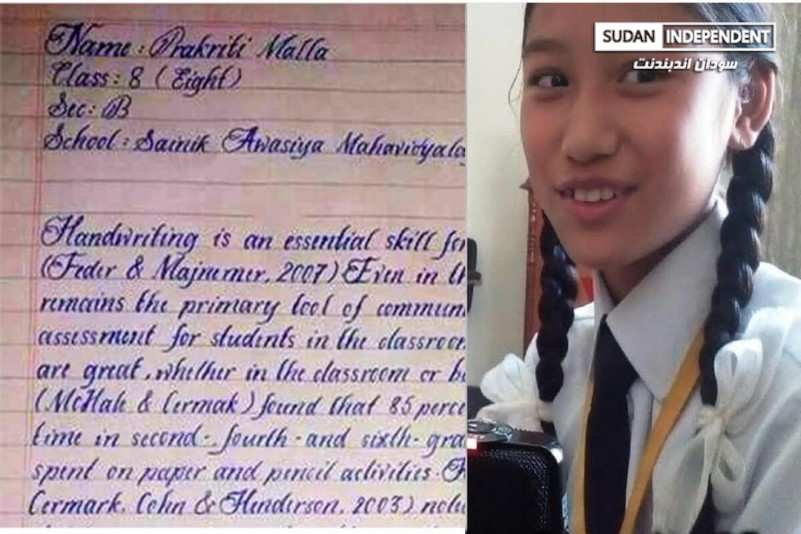 SUDAN INDEPENDENT
سودان اندبندنت
Name : Prakriti Malla
Class : 8 (Eight)
Sec : B
School : Sainik Awasiya Mahavidyala
Handwriting is an essential skill for
(Feder & Majnemer, 2007) Even in th
remains the primary tool of commun
assessment for students in the classroo
are great, whether in the classroom or b
(McHale & Cermak) found that 85 perce
time in second-, fourth-and sixth-gra
spent on paper and pencil activities.
Cermark, Cohn & Henderson, 2003) not